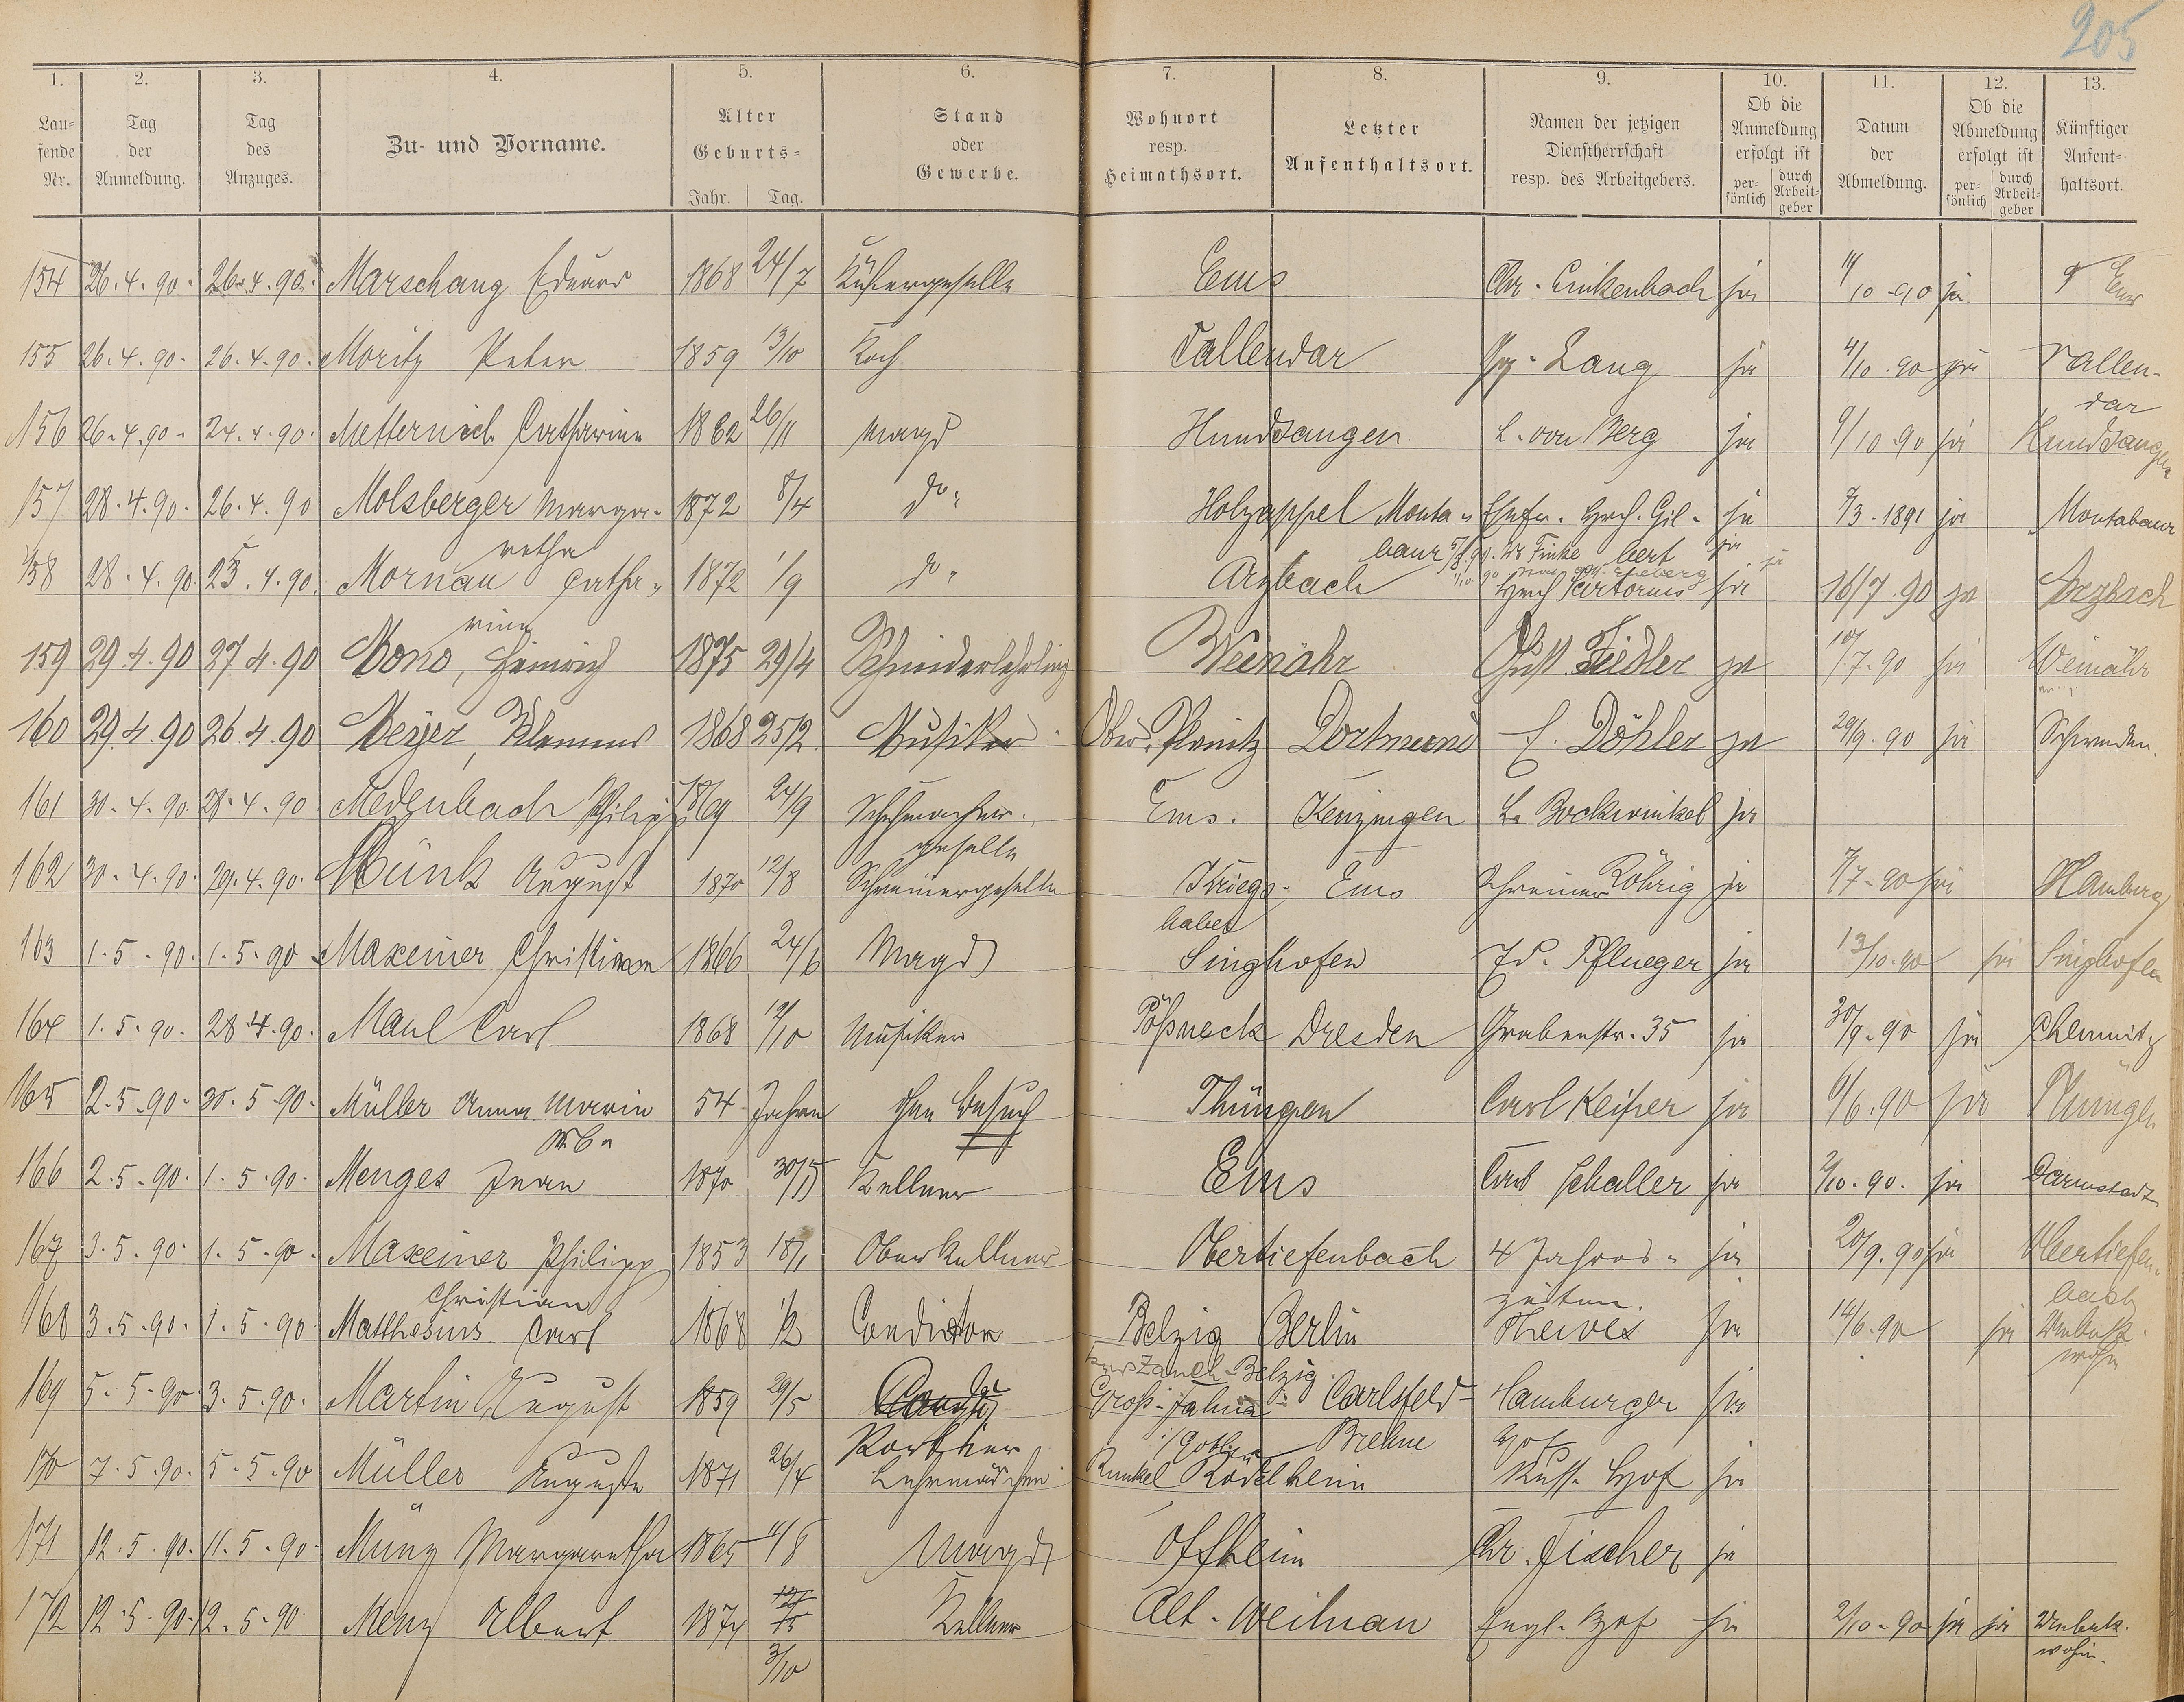 205
1. 2. 3. 4. 5. 6. 7. 8. 9. 10. 11. 12. 13.
Lau-fende Nr. Tag der Anmeldung. Tag des Anzuges. Zu- und Vorname. Alter Geburts- Jahr. Tag. Stand oder Gewerbe. Wohnort resp. Heimathsort. Letzter Aufenthaltsort. Namen der jetzigen Dienstherrschaft resp. des Arbeitgebers. Ob die Anmeldung erfolgt ist per-sönlich durch Arbeit-geber Datum der Abmeldung. Ob die Abmeldung erfolgt ist per-sönlich durch Arbeit-geber Künftiger Aufent-haltsort.
154 26.4.90. 26.4.90. Marschang Eduard 1868 24/7 Ems Chr. Linkenbach ja 10.90 ja Ems
155 26.4.90. 26.4.90. Moritz Peter 1859 13/10 Koch Vallendar Lang ja 4/10.90 ja Vallen-
dar
156 26.4.90. 24.4.90. Metternich Catharina 1862 26/11 Magd Hundsangen L. von Berg ja 9/10.90 ja Hundsangen
157 28.4.90. 26.4.90 Molsberger Marga- 1872 8/4 do. Holzappel Monta- Hrch. Gil- ja 7/3.1891 ja Montabaur
retha baur Finke bert ja
158 28.4.90 25.4.90. Mornau Catha- 1872 1/9 do. Arzbach Hrch Sartorius ja 16/7.90 ja Arzbach
rina
159 29.4.90 27.4.90 Mono, Heinrich 1875 29/4 Schneiderlehrling Weinähr Gust. Fiedler ja 10/7.90 ja Weinähr
160 29.4.90 26.4.90 Meyer, Klemens 1868 25/2 Musiker Ober. Dortmund Döhler ja 29/9.90 ja Schweden.
161 30.4.90. 28.4.90 Medenbach Philipp 1869 24/9 Schuhmacher- Ems. Kenzingen L. Bockwinkel ja
geselle
162 30.4.90. 29.4.90. Münk August 1870 12/8 Schreinergeselle Kriegs- Ems Schreiner Röhrig ja 7/7.90 ja Hamburg
haber
163 1.5.90. 1.5.90 Maxeiner Christiane 1866 24/6 Magd Singhofen Ed. Pflueger ja 13/10.90 ja Singhofen
164 1.5.90. 28.4.90. Maul Carl 1868 12/10 Musiker Pößneck Dresden Grabenstr. 35 ja 30/9.90 ja Chemnitz
165 2.5.90. 30.5.90. Müller Anna Maria 54 Jahre Besuch Thüngen Carl Keiper ja 6/6.90 ja Thüngen
166 2.5.90. 1.5.90. Menges Jean 1870 30/5 Kellner Ems Carl Schaller ja 2/10.90. ja Darmstadt
167 3.5.90. 1.5.90. Maxeiner Philipp 1853 18/1 Oberkellner Obertiefenbach 4 Jahres- ja 20/9.90 ja Obertiefen-
Christian zeiten. bach
168 3.5.90. 1.5.90 Matthesius Carl 1868 1/2 Conditor Belzig Berlin Theives ja 14/6.90 ja Unbek.
Belzig. wohin
169 5.5.90 3.5.90. Martin August 1859 29/5 Groß- Carlsfeld- Hamburger ja
Portier Brehne Hof
170 7.5.90. 5.5.90 Müller Auguste 1871 26/4 Lehrmädchen Runkel Rödelheim Russ. Hof ja
171 12.5.90. 11.5.90 Münz Margaretha 1865 11/8 Magd Offheim Chr. Fischer ja
172 12.5.90. 12.5.90 Menz Albert 1874 Kellner Alt-Weilnau Engl. Hof ja 2/10.90 ja ja Unbek.
3/10 wohin.